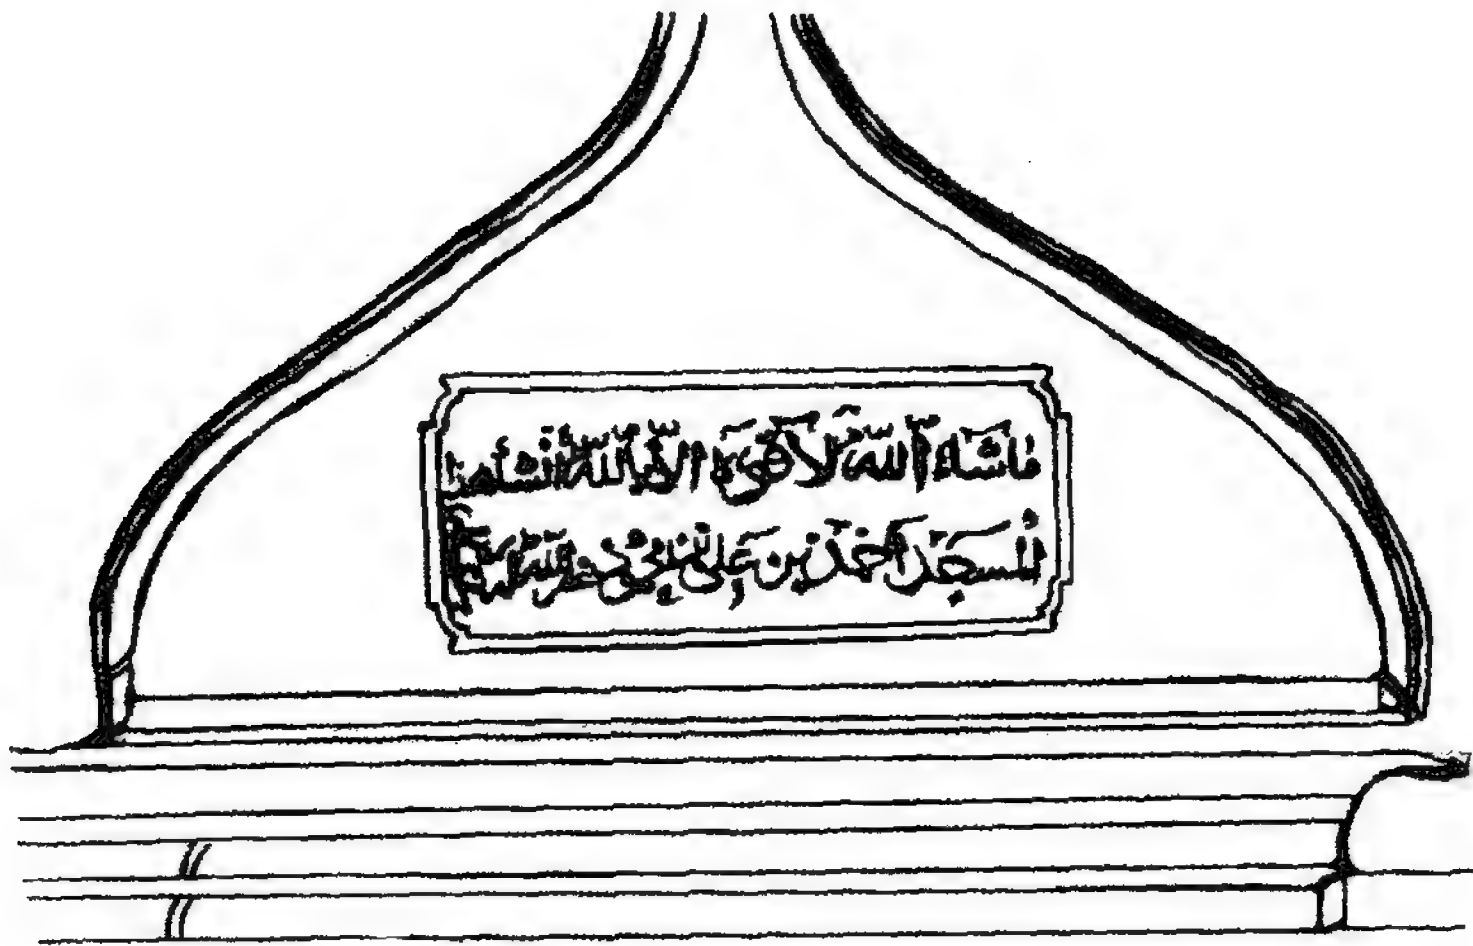 ماشاء الله لا قوة الا بالله انشأ هذا
المسجد احمد بن علي